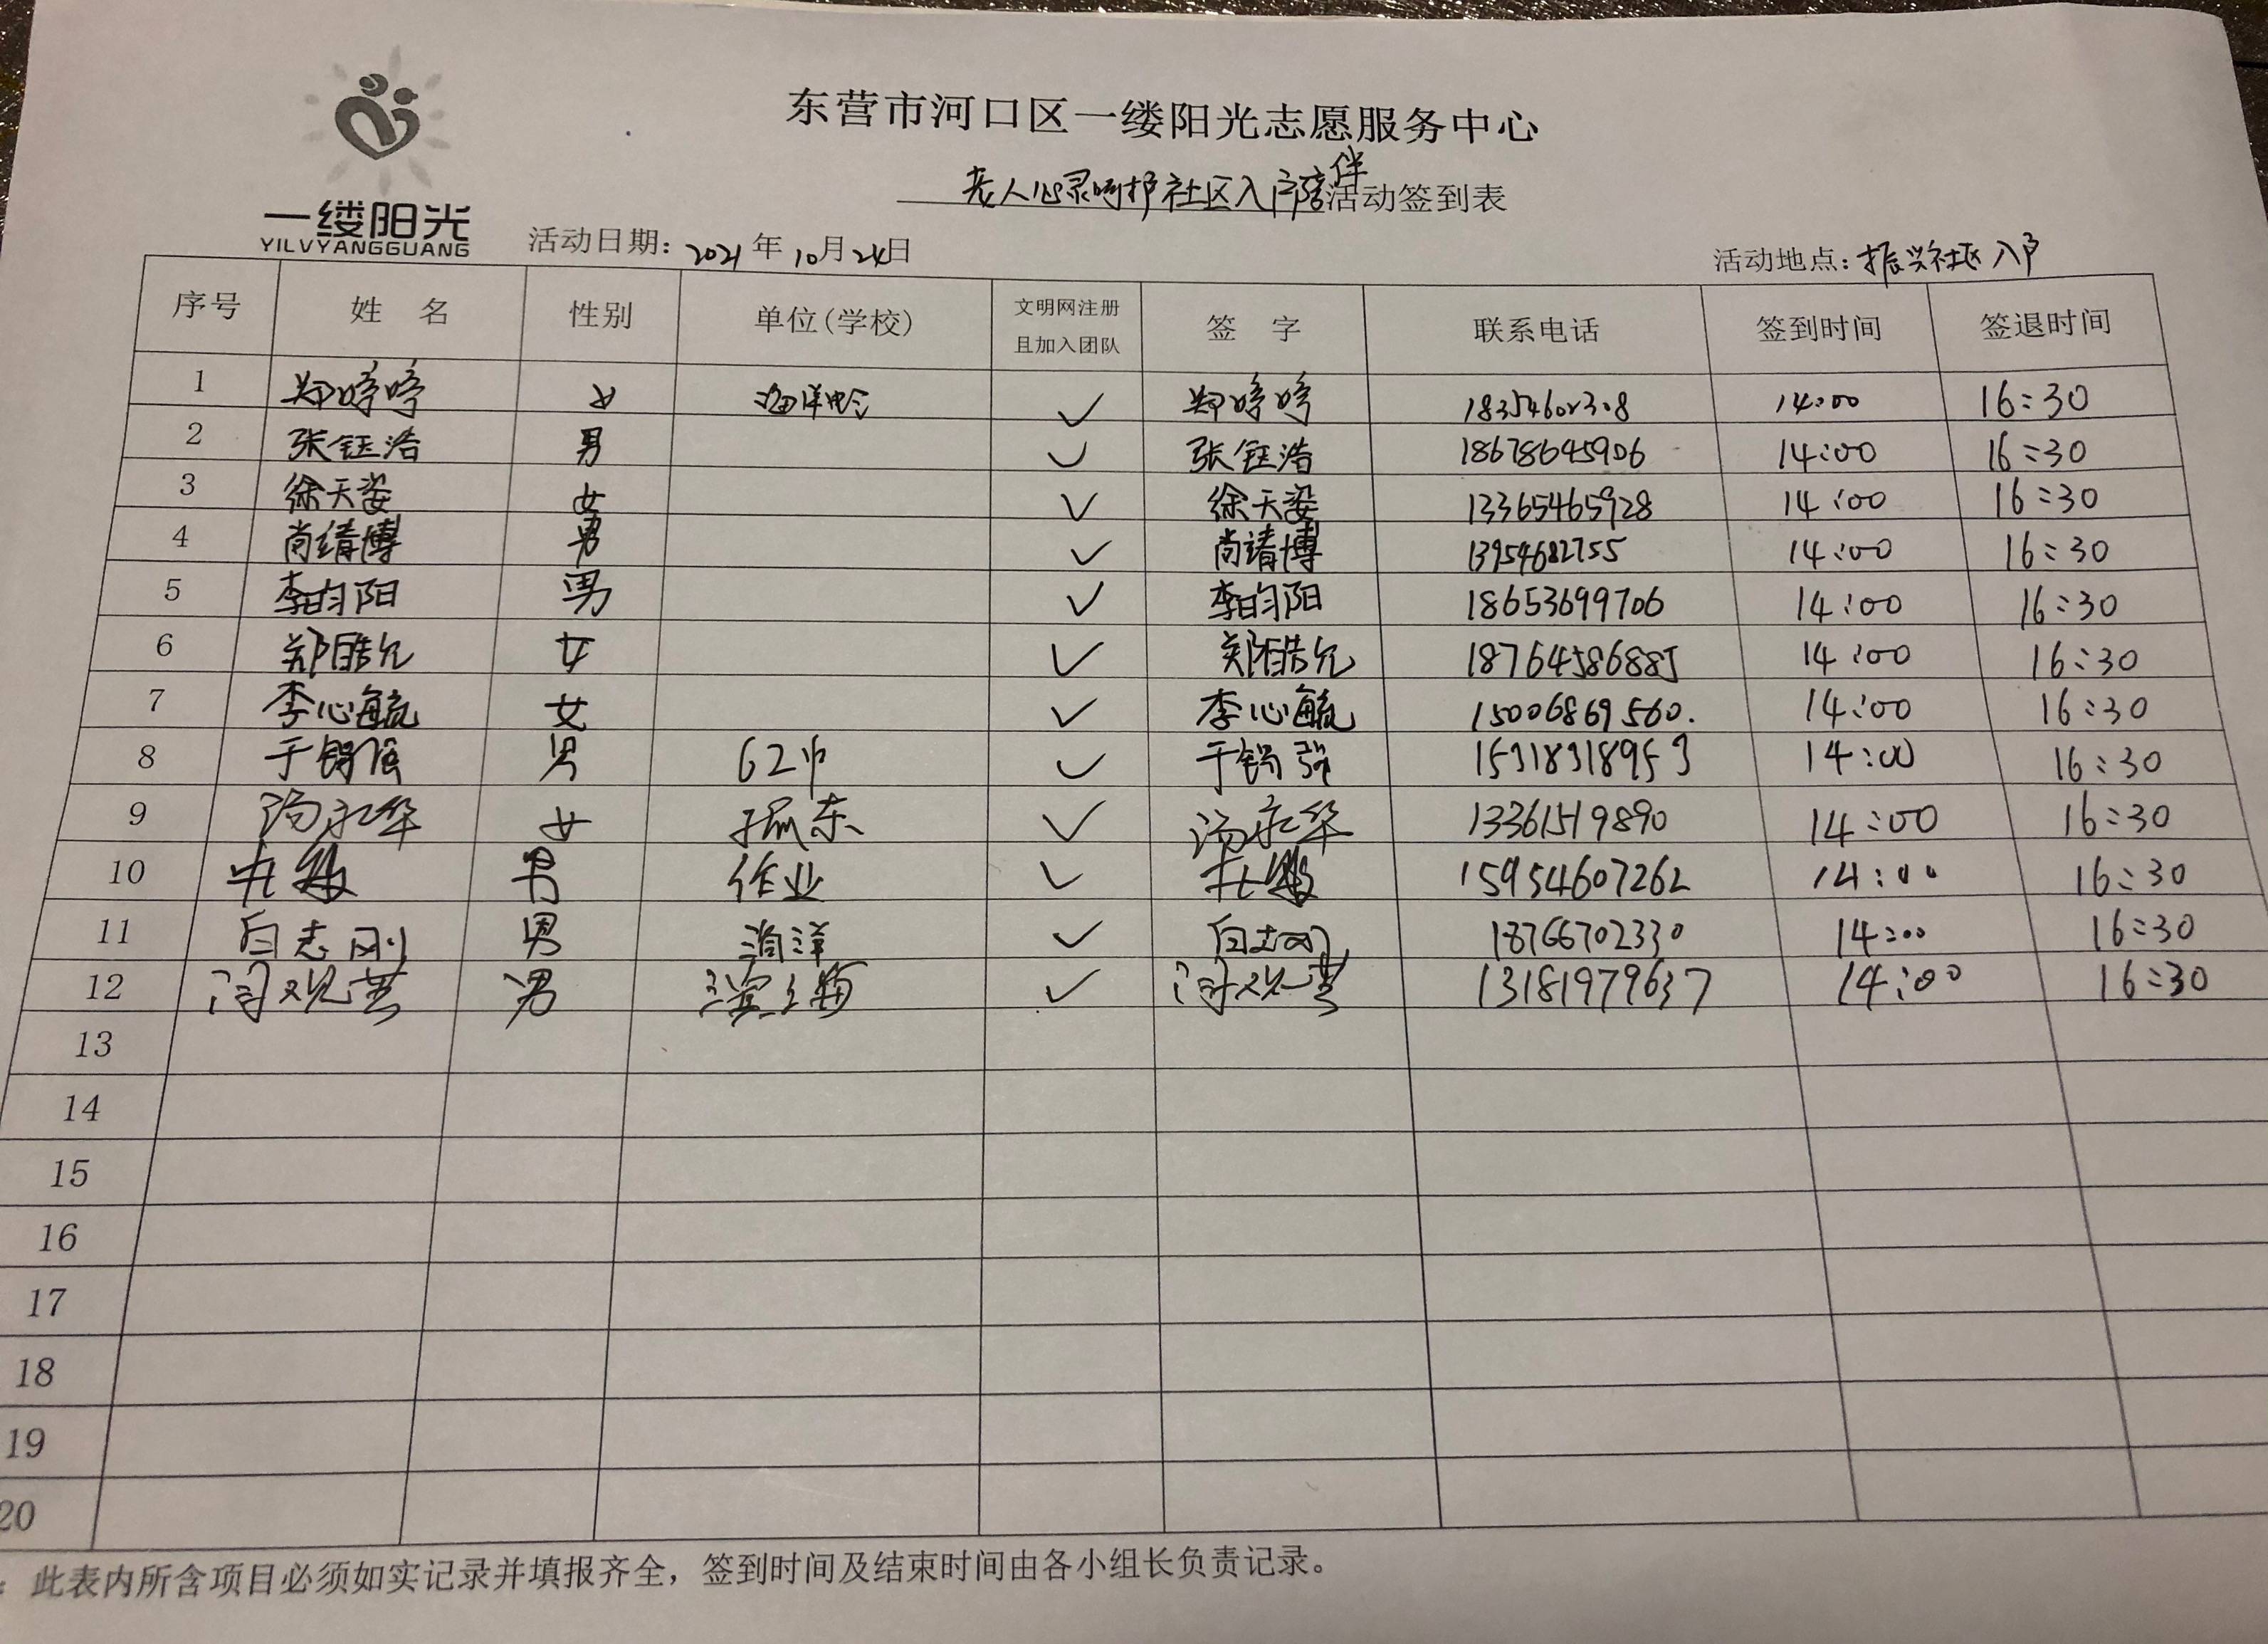 东营市河口区一缕阳光志愿服务中心
老人心灵呵护社区入户陪伴活动签到表
一缕阳光
YILVYANGGUANG
活动日期：2021年10月24日
活动地点：振兴社区入户
序号 姓 名 性别 单位(学校) 文明网注册且加入团队 签 字 联系电话 签到时间 签退时间
1 郑婷婷 女 ✓ 郑婷婷 18354602308 14:00 16:30
2 张钰浩 男 ✓ 张钰浩 18678645906 14:00 16:30
3 徐天姿 女 ✓ 徐天姿 13365465928 14:00 16:30
4 尚靖博 男 ✓ 尚靖博 13954682755 14:00 16:30
5 李昀阳 男 ✓ 李昀阳 18653699706 14:00 16:30
6 郑皓允 女 ✓ 郑皓允 18764586885 14:00 16:30
7 李心毓 女 ✓ 李心毓 15006869560. 14:00 16:30
8 于锡强 男 ✓ 于锡强 15318318953 14:00 16:30
9 汤永华 女 孤东 ✓ 汤永华 13361519890 14:00 16:30
10 杜 男 作业 ✓ 杜 15954607262 14:00 16:30
11 白志刚 男 海洋 ✓ 白志刚 18766702330 14:00 16:30
12 闫观芸 男 ✓ 闫观芸 13181979637 14:00 16:30
13
14
15
16
17
18
19
20
：此表内所含项目必须如实记录并填报齐全，签到时间及结束时间由各小组长负责记录。